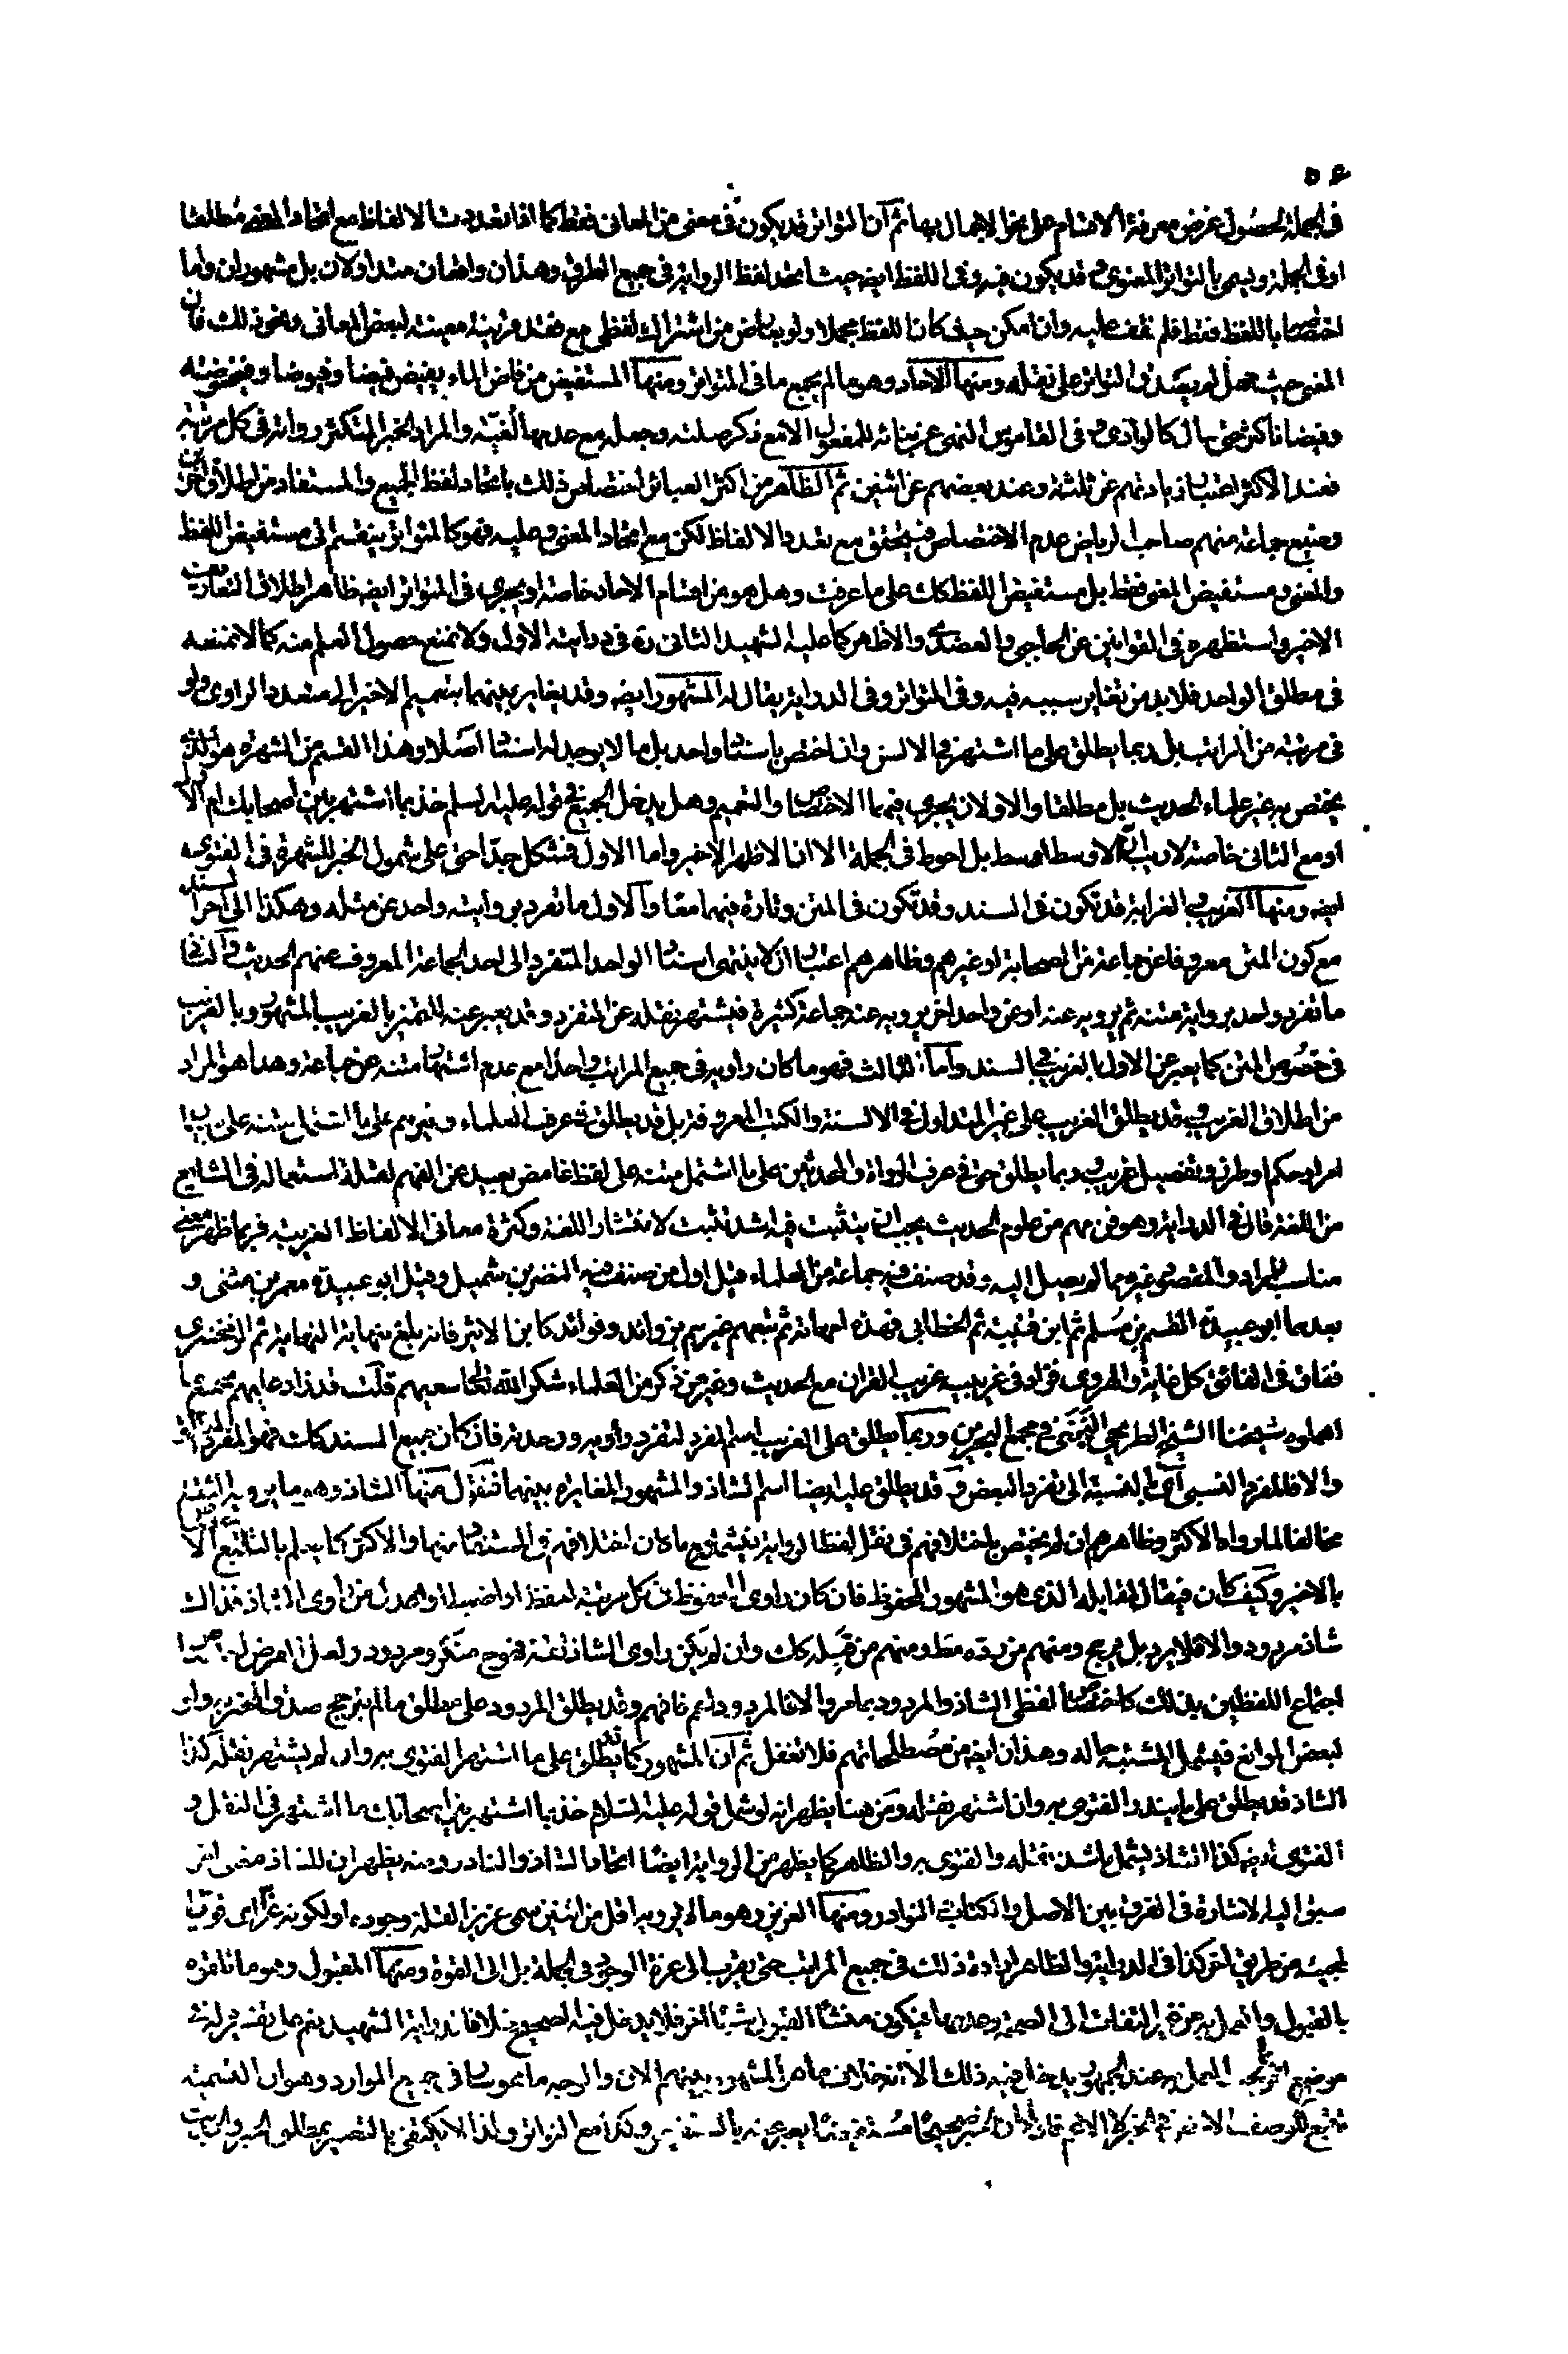 ٥٤
في الجملة لحصول غرض معرفة الاقسام على نحو الاجمال بها ثم ان التواتر قد يكون في معنى من المعاني فقط كما اذا تعددت الالفاظ مع اتحاد المعنى مطلقا
او في الجملة ويسمى بالتواتر المعنوي وقد يكون فيه وفي اللفظ ايضا حيث اتحد لفظ الرواية في جميع الطرق وهذان واضحان متداولان بل مشهوران واما
اختصاصها باللفظ فقط فلم نقف عليه وان امكن حيث كان اللفظ مجملا ولو بعارض من اشتراك لفظي مع فقد قرينة معينة لبعض المعاني ونحو ذلك فان
المعنى حيث جهل لم يصدق التواتر على نقله ومنها الآحاد وهو ما لم يجمع ما في المتواتر ومنها المستفيض من فاض الماء يفيض فيضا وفيوضا وفيضوضة
وفيضانا كثر حتى سال كالوادي وفي القاموس النهي عن بنائه للمفعول الا مع ذكر صلته وجعله مع عدمها لغية والمراد الخبر المتكثر رواته في كل مرتبة
فعند الاكثر اعتبار زيادتهم عن ثلثة وعند بعضهم عن اثنين ثم الظاهر من اكثر العبائر اختصاص ذلك باتحاد لفظ الجميع والمستفاد من اطلاق آخرين
وصنيع جماعة منهم صاحب الرياض عدم الاختصاص فيتحقق مع تعدد الالفاظ لكن مع اتحاد المعنى وعليه فهو كالمتواتر ينقسم الى مستفيض اللفظ
والمعنى ومستفيض المعنى فقط بل مستفيض اللفظ كك على ما عرفت وهل هو من اقسام الآحاد خاصة او يجري في المتواتر ايضا ظاهر اطلاق التعاريف
الاخير واستظهره في القوانين عن الحاجبي والعضدي والاظهر كما عليه الشهيد الثاني ره في درايته الاول ولا نمنع حصول العلم منه كما لا نمنعه
في مطلق الواحد فلابد من تغاير سببه فيه وفي المتواتر وفي الدراية يقال له المشهور ايضا وقد يغاير بينهما بتعميم الاخير الى متعدد الراوي ولو
في مرتبة من المراتب بل ربما يطلق على ما اشتهر في الالسن وان اختص باسناد واحد بل ما لا يوجد له اسناد اصلا وهذا القسم من الشهرة هو الذي
يختص به غير علماء الحديث بل مطلقا والاولان يجري فيهما الاختصاص والتعميم وهل يدخل الجميع في قوله عليه السلم خذ بما اشتهر بين اصحابك ام الاول
او مع الثاني خاصة لا ريب ان الاوسط اوسط بل احوط في الجملة الا ان الاظهر الاخير واما الاول فمشكل جدا حتى على شمول الخبر للشهرة في الفتوى
ايضا ومنها الغريب والغرابة قد تكون في السند وقد تكون في المتن وتارة فيهما معا والاول ما تفرد بروايته واحد عن مثله وهكذا الى آخر السند
مع كون المتن معروفا عن جماعة من الصحابة او غيرهم وظاهرهم اعتبار ان لا ينتهي اسناد الواحد المتفرد الى احد الجماعة المعروف عنهم الحديث والثاني
ما تفرد واحد برواية متنه ثم يرويه عنه او عن واحد آخر يرويه عنه جماعة كثيرة فيشتهر نقله عن المتفرد وقد يعبر عنه للتميز بالغريب المشهور وبالغريب
في خصوص المتن كما يعبر عن الاول بالغريب في السند واما الثالث فهو ما كان راويه في جميع المراتب واحدا مع عدم اشتهار متنه عن جماعة وهذا هو المراد
من اطلاق الغريب وقد يطلق الغريب على غير المتداول في الالسنة والكتب المعروفة بل قد يطلق في عرف العلماء وغيرهم على ما اشتمل متنه على بيان
امر او حكم او طرز وتفصيل غريب وربما يطلق حتى في عرف الرواة والمحدثين على ما اشتمل متنه على لفظ غامض بعيد عن الفهم لقلة استعماله في الشايع
من اللغة قال في الدراية وهو فن مهم من علوم الحديث يجب ان يتثبت فيه اشد تثبت لانتشار اللغة وكثرة معاني الالفاظ الغريبة فربما ظهر معنى
مناسب للمراد والمقصود غيره مما لم يصل اليه وقد صنف فيه جماعة من العلماء قيل اول من صنف فيه النضر بن شميل وقيل ابو عبيدة معمر بن مثنى و
بعدهما ابو عبيدة القسم بن سلم ثم ابن قتيبة ثم الخطابي فهذه امهاته ثم تبعهم غيرهم بزوائد وفوائد كابن الاثير فانه بلغ بنهايته النهاية ثم الزمخشري
ففاق في الفائق كل غاية والهروي فزاد في غريبيه غريب القران مع الحديث وغير من ذكر من العلماء شكر الله تعالى سعيهم قلت قد زاد عليهم جميع ما
اهملوه شيخنا الشيخ الطريحي النجفي في مجمع البحرين وربما يطلق على الغريب اسم المفرد لتفرد راويه ووحدته فان كان جميع السند كك فهو المفرد المطلق
والا فالمفرد النسبي اي بالنسبة الى تفرد البعض وقد يطلق عليه ايضا اسم الشاذ والمشهور المغايرة بينهما فنقول منها الشاذ وهو ما يرويه الثقة
مخالفا لما رواه الاكثر وظاهرهم ان لم يختص باختلافهم في نقل لفظ الرواية
بالاخير وكيف كان فيقال لمقابله الذي هو المشهور المحفوظ فان كان راوي المحفوظ في كل مرتبة احفظ او اضبط او اعدل من راوي الشاذ فذلك
شاذ مردود والا فلا يرد بل يرجح ومنهم من رده مط ومنهم من قبله كك وان لم يكن راوي الشاذ ثقة فهو منكر ومردود ولعل الغرض
اجتماع اللفظين بذلك كاختصاص لفظي الشاذ والمردود بما مر والا فالمردود اعم فافهم وقد يطلق المردود على مطلق ما لم يترجح صدق المخبر به ولو
لبعض الموانع فيشمل المشتبه حاله وهذان ايضا من مصطلحاتهم فلا تغفل ثم ان المشهور كما قد يطلق على ما اشتهر الفتوى به وان لم يشتهر نقله كذا
الشاذ قد يطلق على ما يندر الفتوى به وان اشتهر نقله ومن هنا يظهر انه لو شمل قوله عليه السلام خذ بما اشتهر بين اصحابك ما اشتهر في النقل و
الفتوى ايضا كذا الشاذ يشمل ما شذ نقله والفتوى به والظاهر كما يظهر من الرواية ايضا اتحاد الشاذ والنادر ومنه يظهر ان للشاذ معنى اخر
سبق اليه الاشارة في الفرق بين الاصل والكتاب والنوادر ومنها العزيز وهو ما لا يرويه اقل من اثنين سمي عزيزا لقلة وجوده او لكونه عز اي قوي
بمجيئه من طريق اخر كذا في الدراية والظاهر ارادة ذلك في جميع المراتب حتى يقرب الى عزة الوجود في الجملة بل الى القوة ومنها المقبول وهو ما تلقوه
بالقبول والعمل به من غير التفات الى الصحة وعدمها
موضع
تتبع للوصف